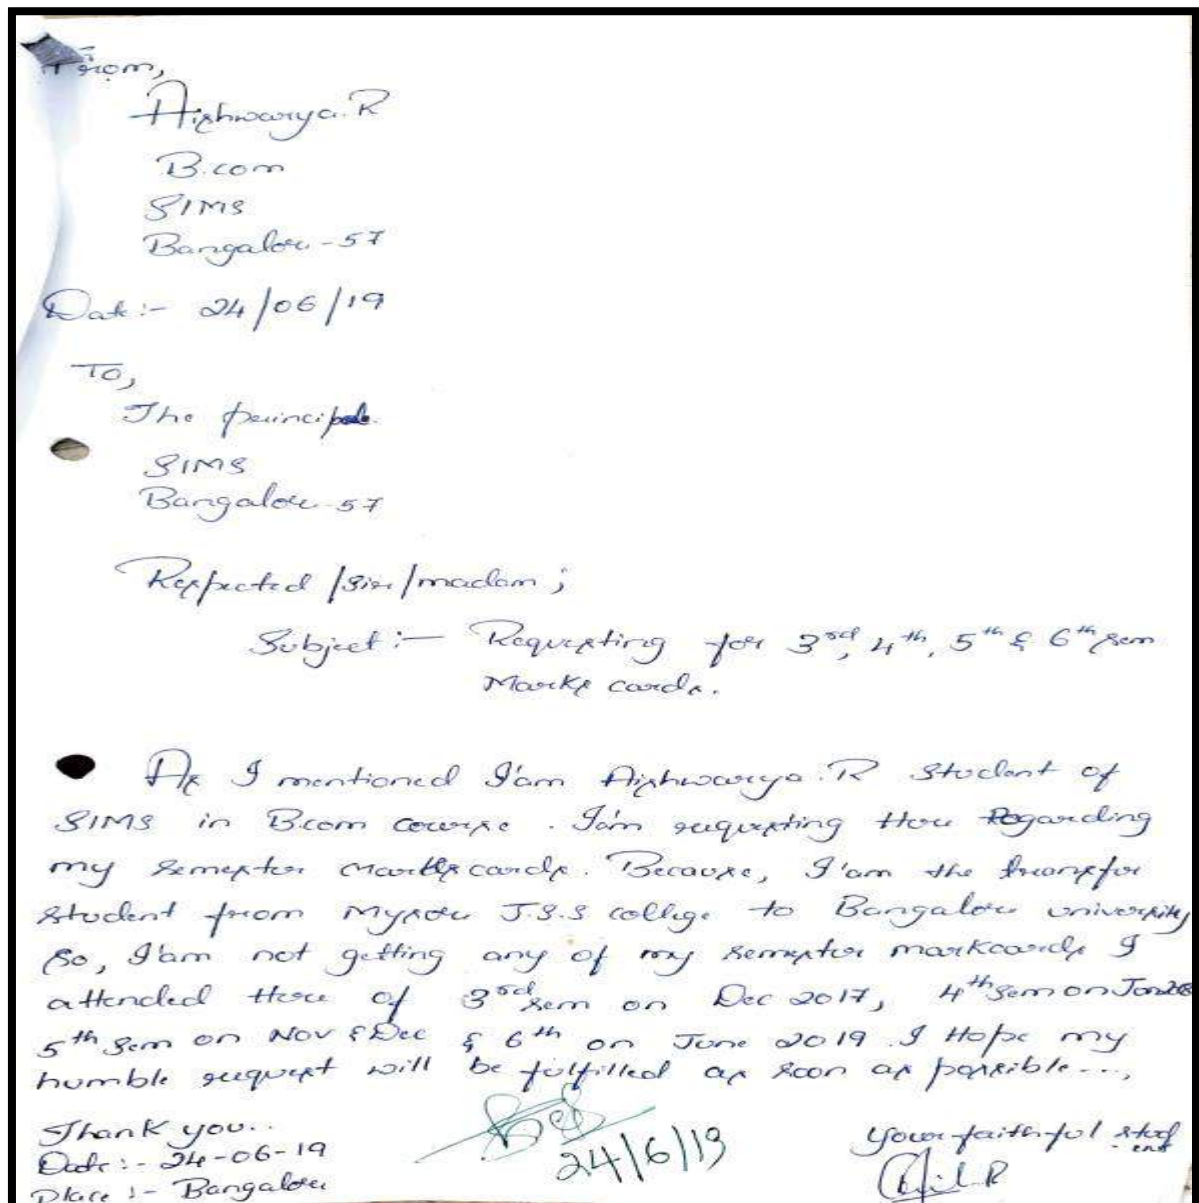 From,
Aishwarya.R
B.com
SIMS
Bangalore-57
Date:- 24/06/19
To,
The principal
SIMS
Bangalore-57
Respected /Sir/madam;
Subject:- Requesting for 3rd, 4th, 5th & 6th sem
Marks cards.
As I mentioned I'am Aishwarya.R Student of
SIMS in B.com course. I'am requesting Here Regarding
my semester Markscards. Because, I'am the transfer
Student from Mysore J.S.S college to Bangalore university
So, I'am not getting any of my semester markcards I
attended Here of 3rd sem on Dec 2017, 4th Sem on
5th Sem on Nov & Dec & 6th on June 2019. I Hope my
humble request will be fulfilled as soon as possible...,
Thank you..
24/6/19
Your faithful stud
ent
Date:- 24-06-19
Place :- Bangalore